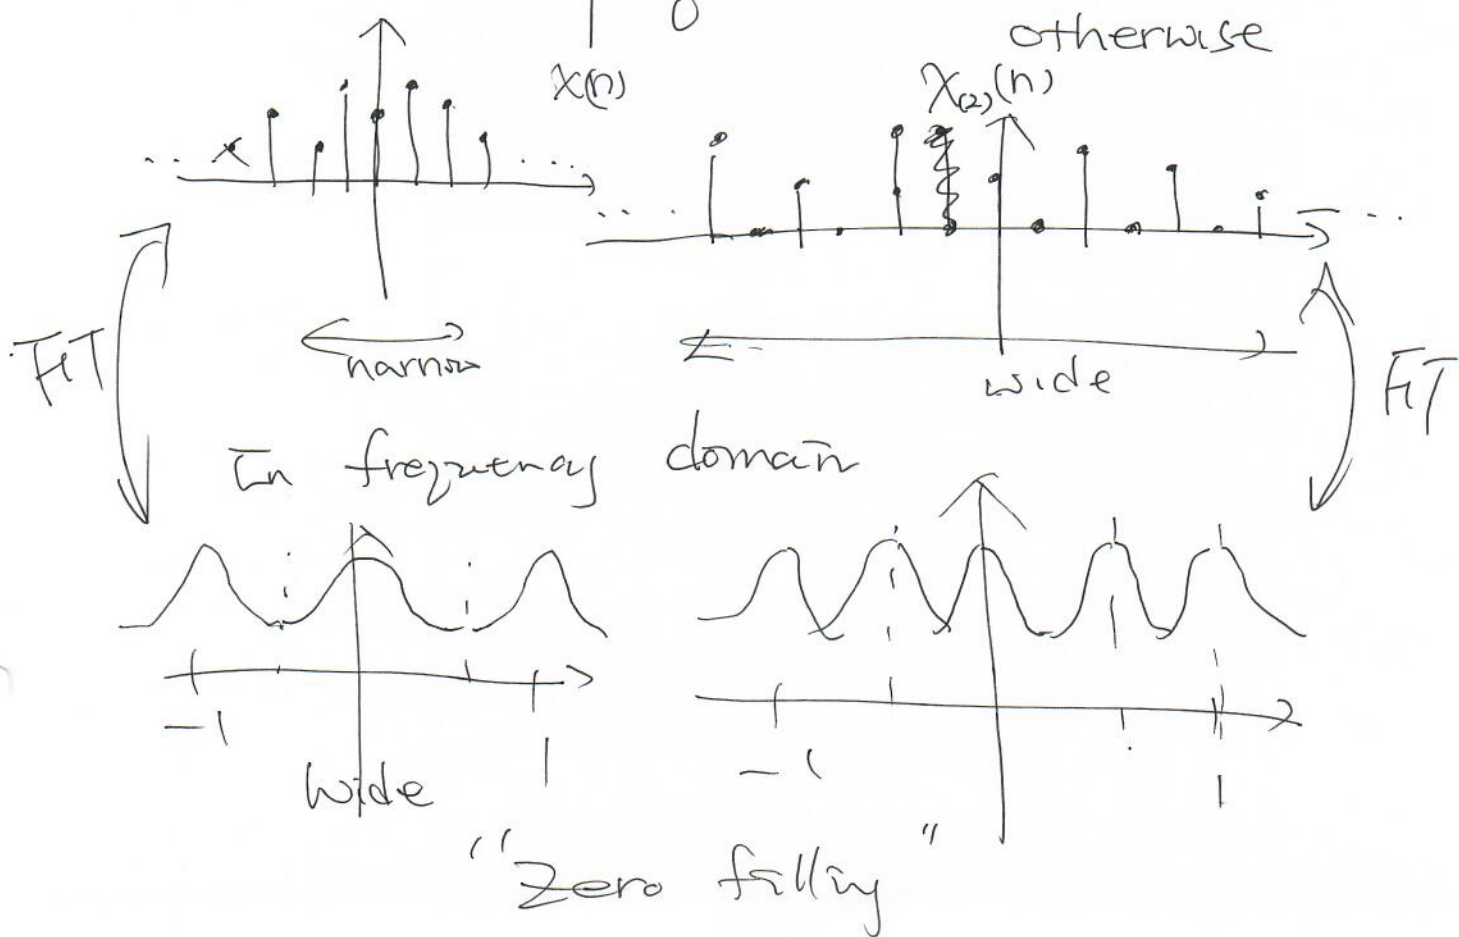 0
otherwise
x(n)
x(2)(n)
.. ....
.... ...
FT
narrow
wide
FT
In frequency domain
-1
1
-1
1
wide
"Zero filling"